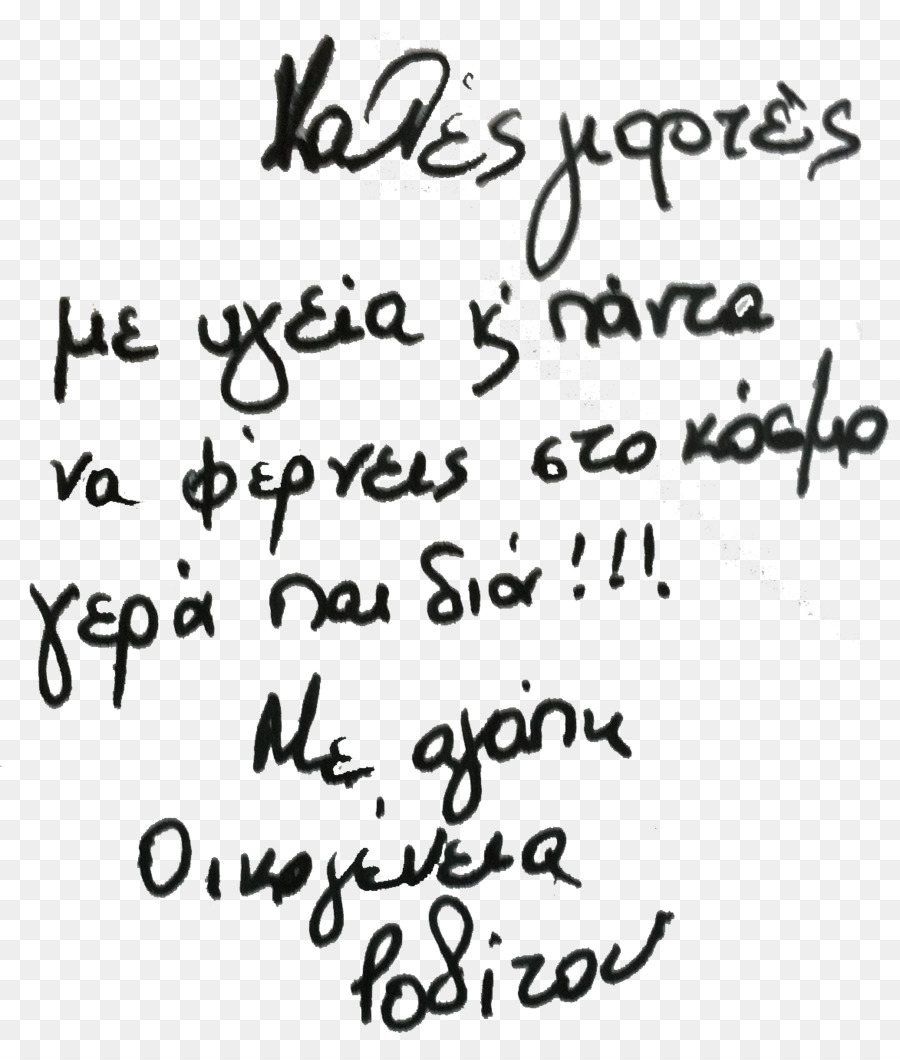 Καλές γιορτές
με υγεία κ' πάντα
να φέρνεις στο κόσμο
γερά παιδιά!!!
Με αγάπη
Οικογένεια
Ροδίτου